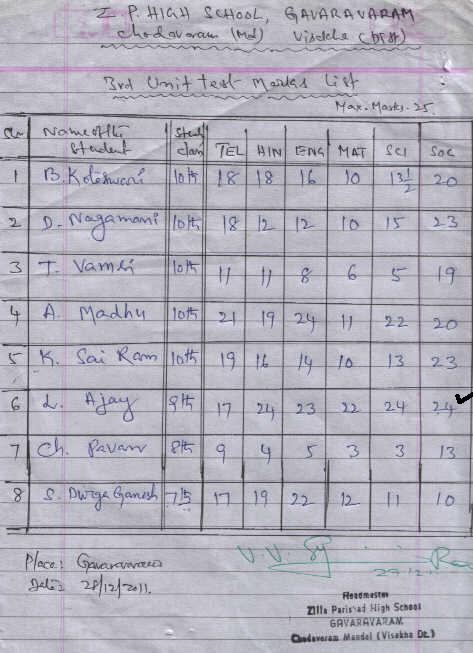 Z P. HIGH SCHOOL, GAVARAVARAM
Chodavaram (Md) Visakha (Dist)
3rd Unit test Marks List
Max. Marks - 25.
Name of the Student Stud class TEL HIN ENG MAT SCI SOC
1 B. Koteswari 10th 18 18 16 10 13½ 20
2 D. Nagamani 10th 18 12 12 10 15 23
3 T. Vamsi 10th 11 11 8 6 5 19
4 A. Madhu 10th 21 19 24 11 22 20
5 K. Sai Ram 10th 19 16 14 10 13 23
6 L. Ajay 9th 17 24 23 22 24 24
7 Ch. Pavan 8th 9 4 5 3 3 13
8 S. Durga Ganesh 7th 17 19 22 12 11 10
Place: Gavaravaram
Date: 28/12/2011.
Headmaster
Zilla Parishad High School
GAVARAVARAM
Chodavaram Mandal (Visakha Dt.)